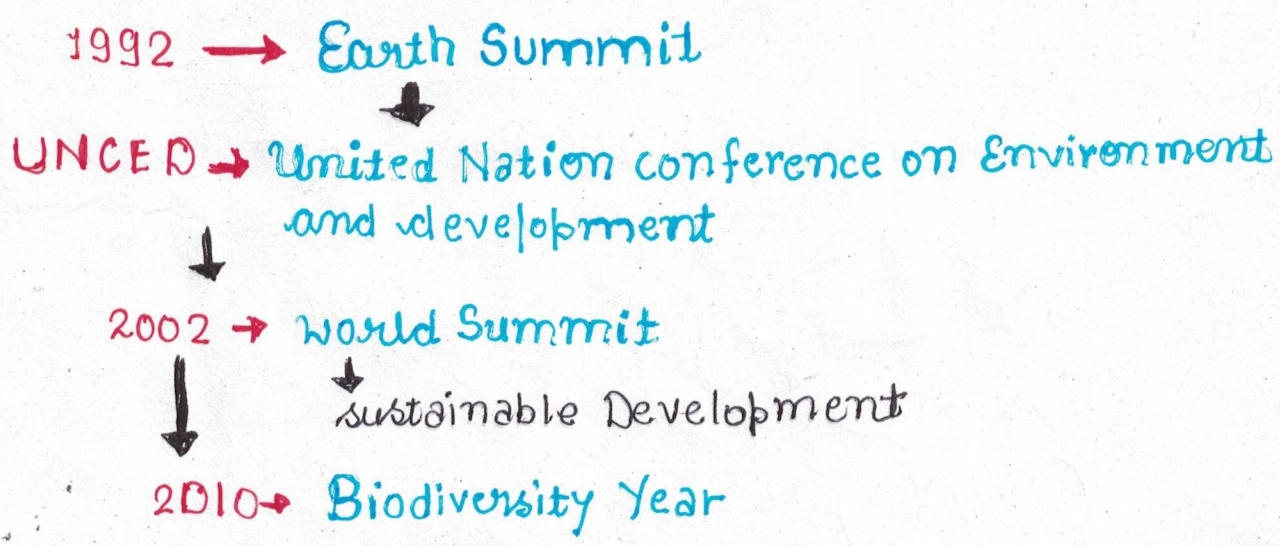 1992 → Earth Summit
UNCED → United Nation conference on Environment
and development
2002 → world Summit
sustainable Development
2010 → Biodiversity Year